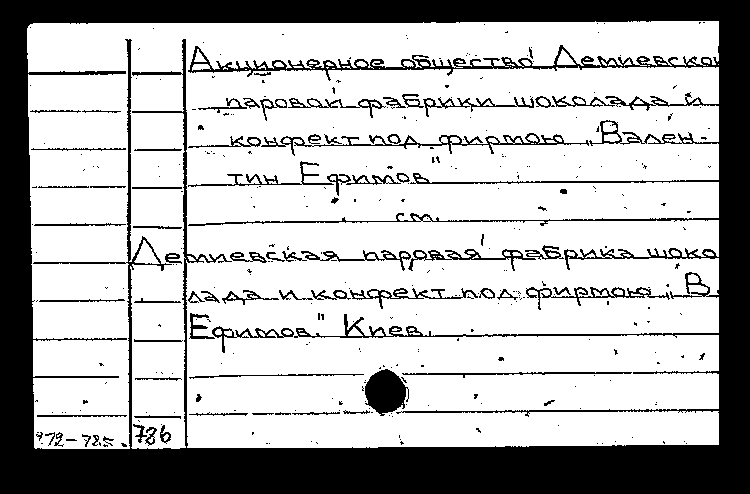 Акционерное общество Демиевской
паровой фабрики шоколада и
конфект под фирмою „Вален-
тин Ефимов"
см.
Демиевская паровая фабрика шоко
лада и конфект под фирмою „В.
Ефимов." Киев.
786